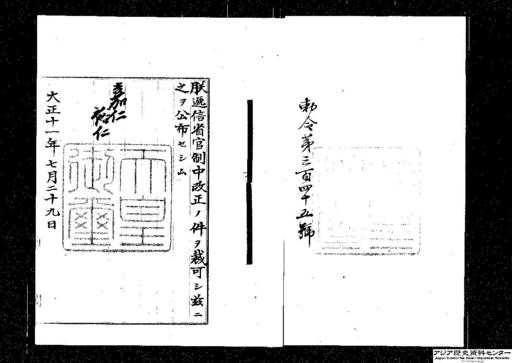 勅令第三百四十五號
朕逓信省官制中改正ノ件ヲ裁可シ茲ニ
之ヲ公布セシム
嘉仁
裕仁
天皇
御璽
大正十一年七月二十九日
アジア歴史資料センター
Japan Center for Asian Historical Records